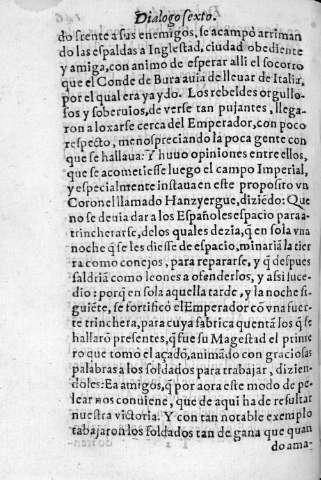 Dialogo sexto.
do frente a sus enemigos, se acampò arriman
do las espaldas a Inglestad, ciudad obediente
y amiga, con animo de esperar alli el socorro
que el Conde de Bura auia de lleuar de Italia,
por el qual era ya ydo. Los rebeldes orgullo-
sos y soberuios, de verse tan pujantes, llega-
ron a loxarse cerca del Emperador, con poco
respecto, menospreciando la poca gente con
que se hallaua: Y huuo opiniones entre ellos,
que se acometiesse luego el campo Imperial,
y especialmente instaua en este proposito vn
Coronel llamado Hanzyergue, diziẽdo: Que
no se deuia dar a los Españoles espacio para a-
trincherarse, delos quales dezia, q̃ en sola vna
noche q̃ se les diesse de espacio, minariã la tier
ra como conejos, para repararse, y q̃ despues
saldriã como leones a ofenderlos, y assi suce-
dio: porq̃ en sola aquella tarde, y la noche si-
guiẽte, se fortificò el Emperador cõ vna fuer-
te trinchera, para cuya fabrica quentã los q̃ se
hallarõ presentes, q̃ fue su Magestad el prime
ro que tomò el açadõ, animãdo con graciosas
palabras a los soldados para trabajar, dizien-
doles: Ea amigos, q̃ por aora este modo de pe-
lear nos conuiene, que de aqui ha de resultar
nuestra victoria. Y con tan notable exemplo
tabajaron los soldados tan de gana que quan
do ama-